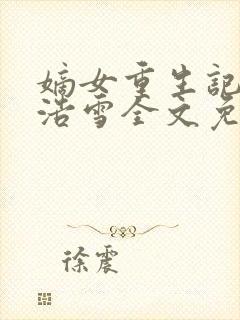 嫡女重生記
浩雪全文免
徐震